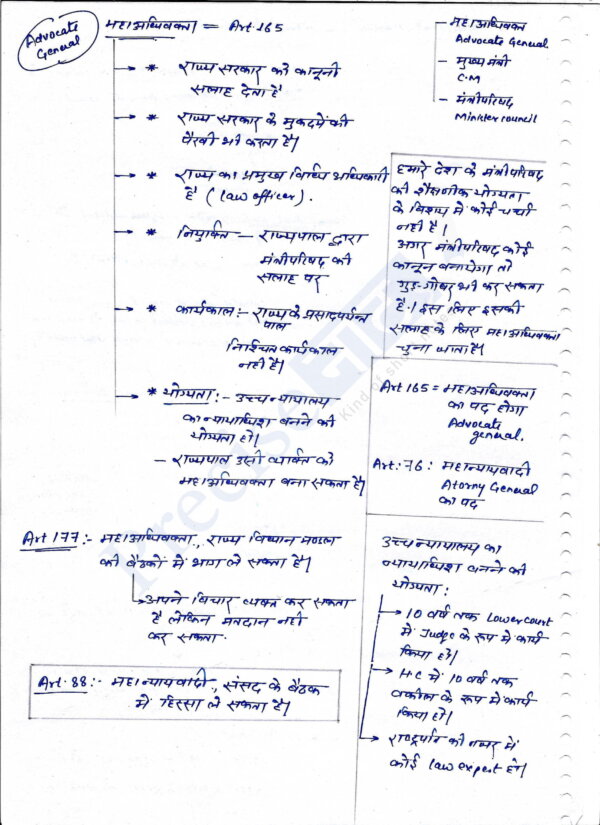 Advocate
General
महाअधिवक्ता = Art. 165
* राज्य सरकार को कानूनी
सलाह देता है
* राज्य सरकार के मुकदमें की
पैरवी भी करता है।
* राज्य का प्रमुख विधि अधिकारी
है (law officer).
* नियुक्ति - राज्यपाल द्वारा
मंत्रीपरिषद की
सलाह पर
* कार्यकाल :- राज्य के प्रसादपर्यन्त
पाल
निश्चित कार्यकाल
नहीं है।
* योग्यता :- उच्चन्यायालय
का न्यायाधिश बनने की
योग्यता हो।
- राज्यपाल उसी व्यक्ति को
महाअधिवक्ता बना सकता है।
- महाअधिवक्ता
Advocate General
- मुख्यमंत्री
C.M
- मंत्रीपरिषद
Minister council
हमारे देश के मंत्रीपरिषद
की शैक्षणीक योग्यता
के विषय में कोई चर्चा
नहीं है।
अगर मंत्रीपरिषद कोई
कानून बनायेगा तो
गुड़-गोबर भी कर सकता
है। इस लिए इसकी
सलाह के लिए महाअधिवक्ता
चुना जाता है।
Art 165 = महाअधिवक्ता
का पद होगा
Advocate
general.
Art. 76 : महान्यायवादी
Atorny General
का पद
Art 177 :- महाअधिवक्ता, राज्य विधान मण्डल
की बैठकों में भाग ले सकता है।
अपने विचार व्यक्त कर सकता
है लेकिन मतदान नही
कर सकता
Art. 88 :- महान्यायवादी, संसद के बैठक
में हिस्सा ले सकता है।
उच्चन्यायालय का
न्यायाधिश बनने की
योग्यता :
10 वर्ष तक Lower court
में Judge के रूप में कार्य
किया हो।
HC में 10 वर्ष तक
वकील के रूप में कार्य
किया हो।
राष्ट्रपति की नजर में
कोई law expert हो।